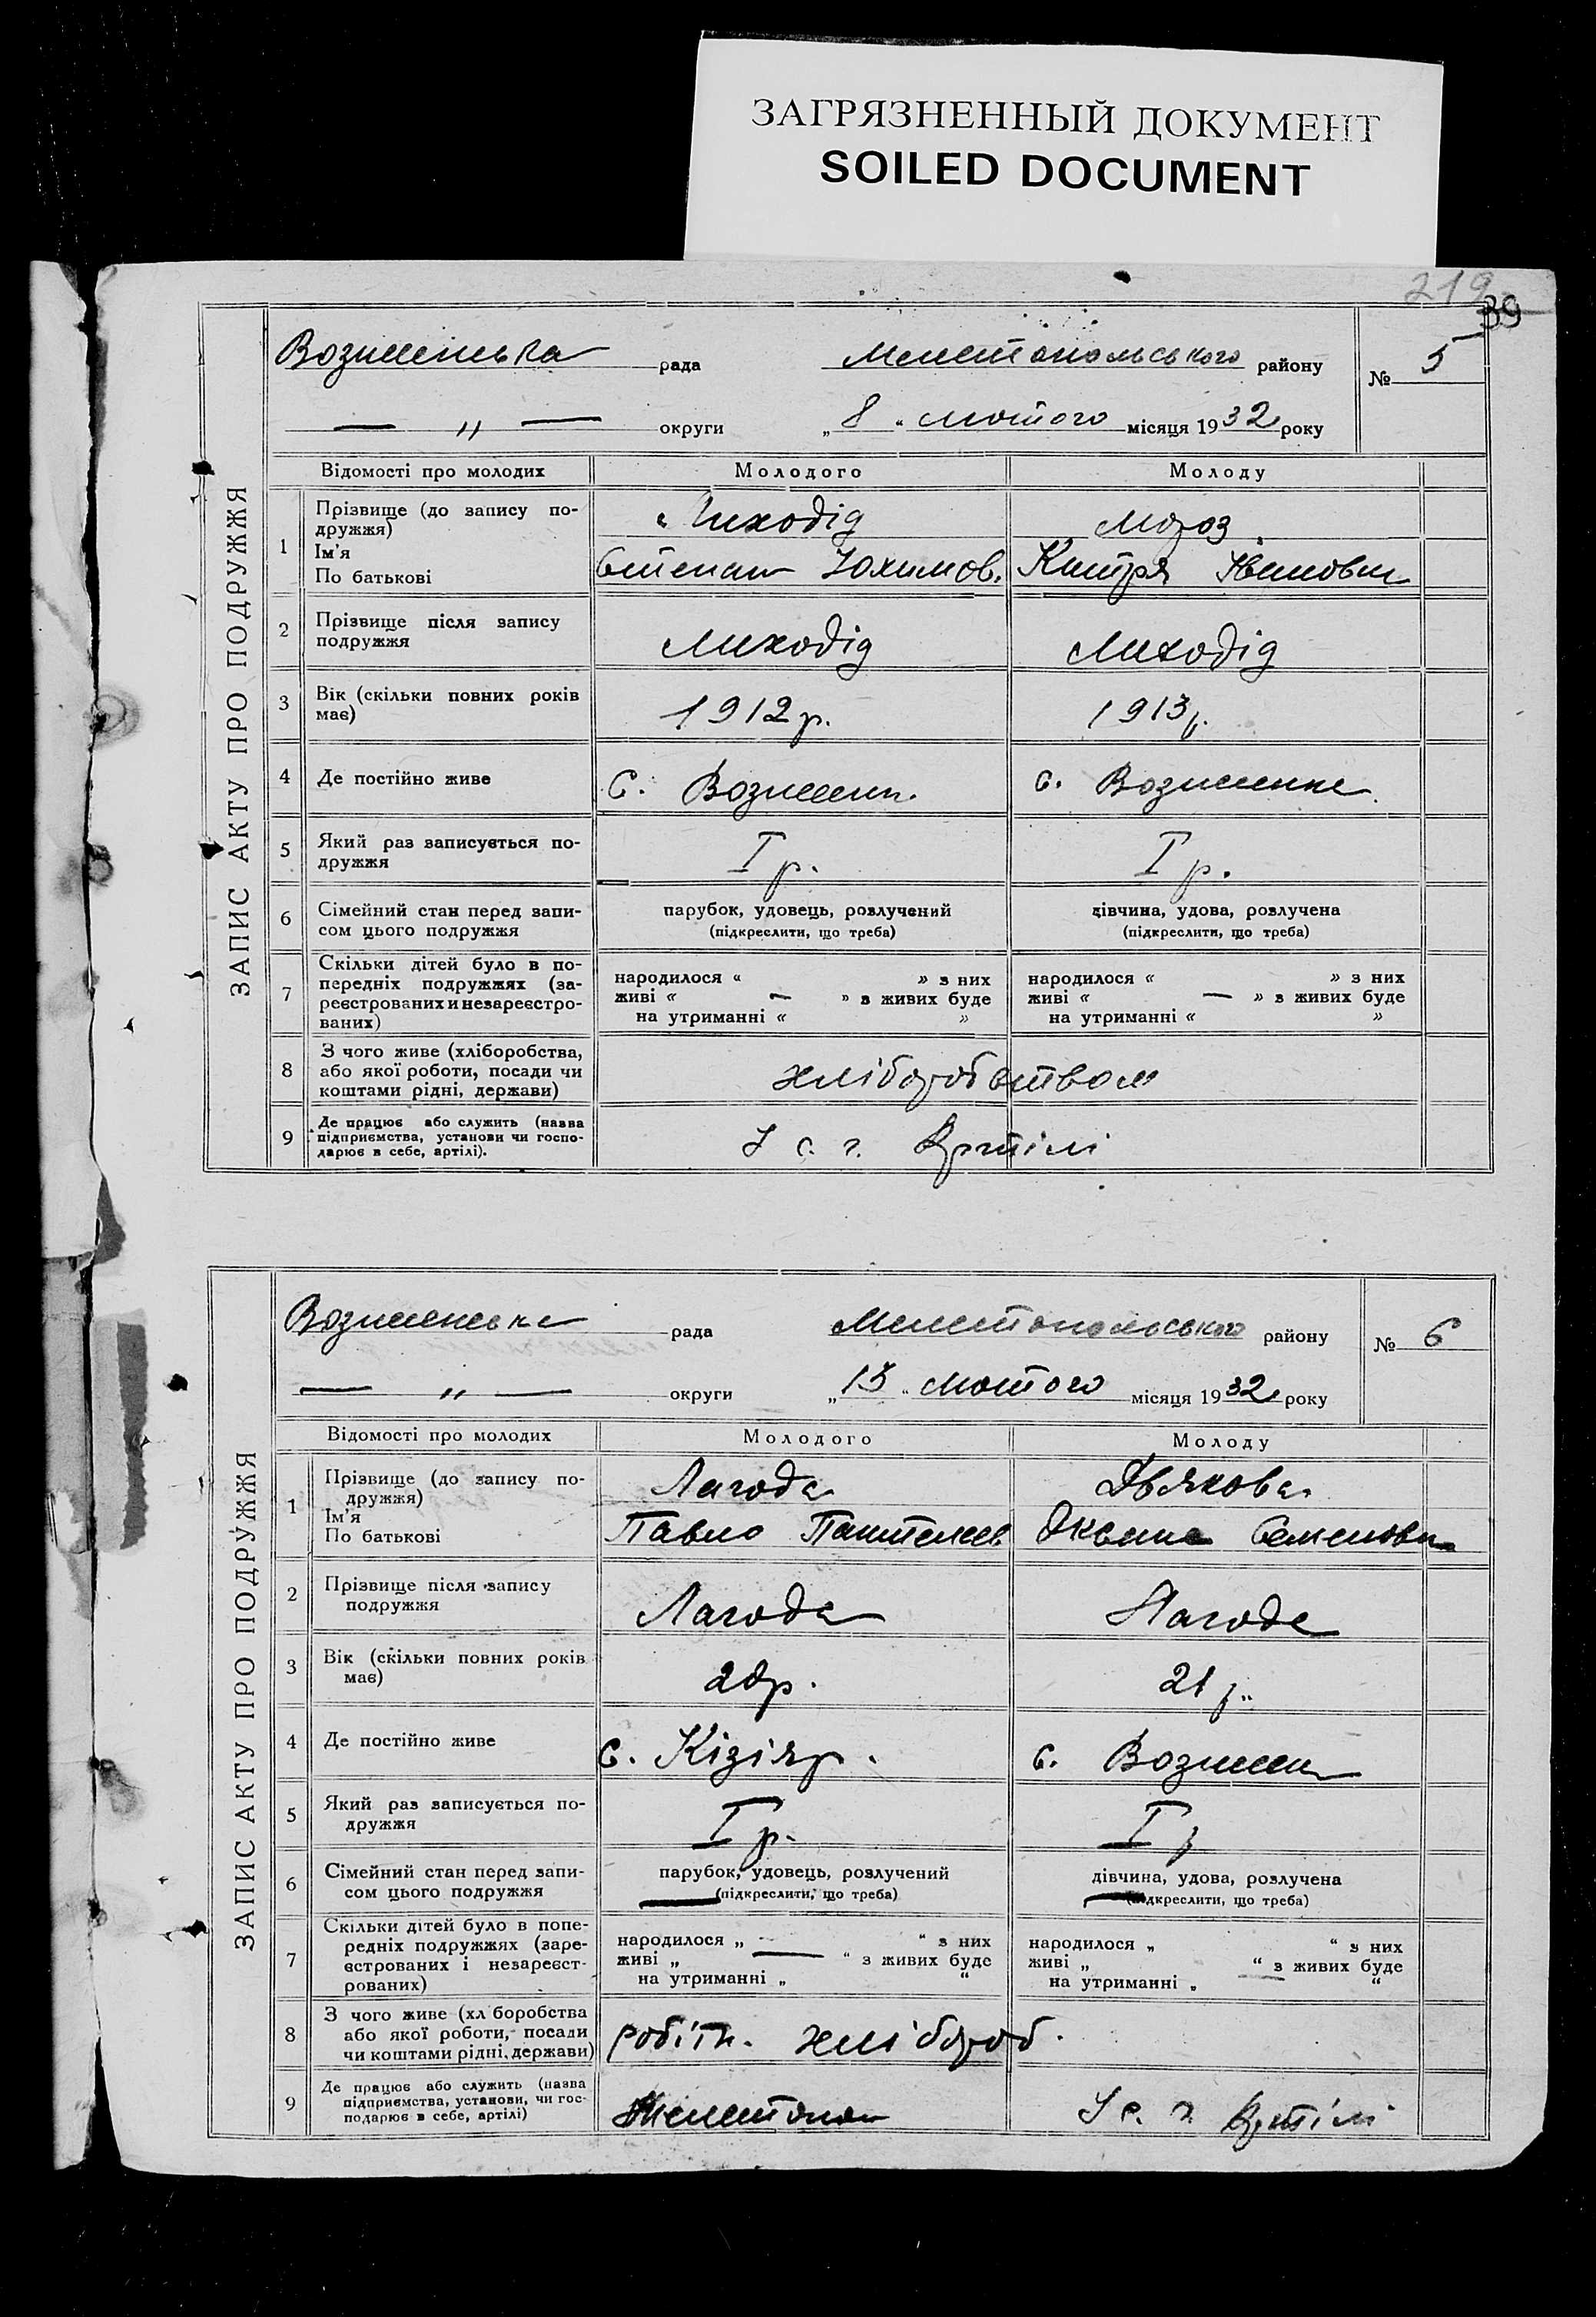 ЗАГРЯЗНЕННЫЙ ДОКУМЕНТ
SOILED DOCUMENT
219
39
ЗАПИС АКТУ ПРО ПОДРУЖЖЯ
Вознесенська рада Мелетопольського району № 5
— „ — округи „8“ лютого місяця 1932 року
Відомості про молодих Молодого Молоду
1 Прізвище (до запису по-
дружжя)
Ім'я
По батькові
Лиходід Мороз
Степан Юхимов. Катря Івановн
2 Прізвище після запису
подружжя
Лиходід Лиходід
3 Вік (скільки повних років
має)
1912 р. 1913 р.
4 Де постійно живе с. Вознесен. с. Вознесенка
5 Який раз записується по-
дружжя
I р. I р.
6 Сімейний стан перед запи-
сом цього подружжя
парубок, удовець, розлучений дівчина, удова, розлучена
(підкреслити, що треба) (підкреслити, що треба)
7 Скільки дітей було в по-
передніх подружжях (за-
реєстрованих и незареєстро-
ваних)
народилося « » з них народилося « » з них
живі « — » з живих буде живі « — » з живих буде
на утриманні « » на утриманні « »
8 З чого живе (хліборобства,
або якої роботи, посади чи
коштами рідні, держави)
хліборобством
9 Де працює або служить (назва
підприємства, установи чи госпо-
дарює в себе, артілі).
У с. г. Артілі
ЗАПИС АКТУ ПРО ПОДРУЖЖЯ
Вознесенська рада Мелетопольського району № 6
— „ — округи „15“ лютого місяця 1932 року
Відомості про молодих Молодого Молоду
1 Прізвище (до запису по-
дружжя)
Ім'я
По батькові
Лагода Дьякова
Павло Пантелеєв Оксана Семеновн
2 Прізвище після запису
подружжя
Лагода Лагода
3 Вік (скільки повних років
має)
20 р. 21 р.
4 Де постійно живе с. Кізіяр. с. Вознесен
5 Який раз записується по-
дружжя
I р. I р
6 Сімейний стан перед запи-
сом цього подружжя
парубок, удовець, розлучений дівчина, удова, розлучена
(підкреслити, що треба) (підкреслити, що треба)
7 Скільки дітей було в попе-
редніх подружжях (заре-
єстрованих і незареєст-
рованих)
народилося „ — “ з них народилося „ “ з них
живі „ — “ з живих буде живі „ “ з живих буде
на утриманні „ “ на утриманні „ “
8 З чого живе (хл боробства
або якої роботи, посади
чи коштами рідні, держави)
робітн. хлібороб.
9 Де працює або служить (назва
підприємства, установи, чи гос-
подарює в себе, артілі)
Мелетополь У с. г. Артілі